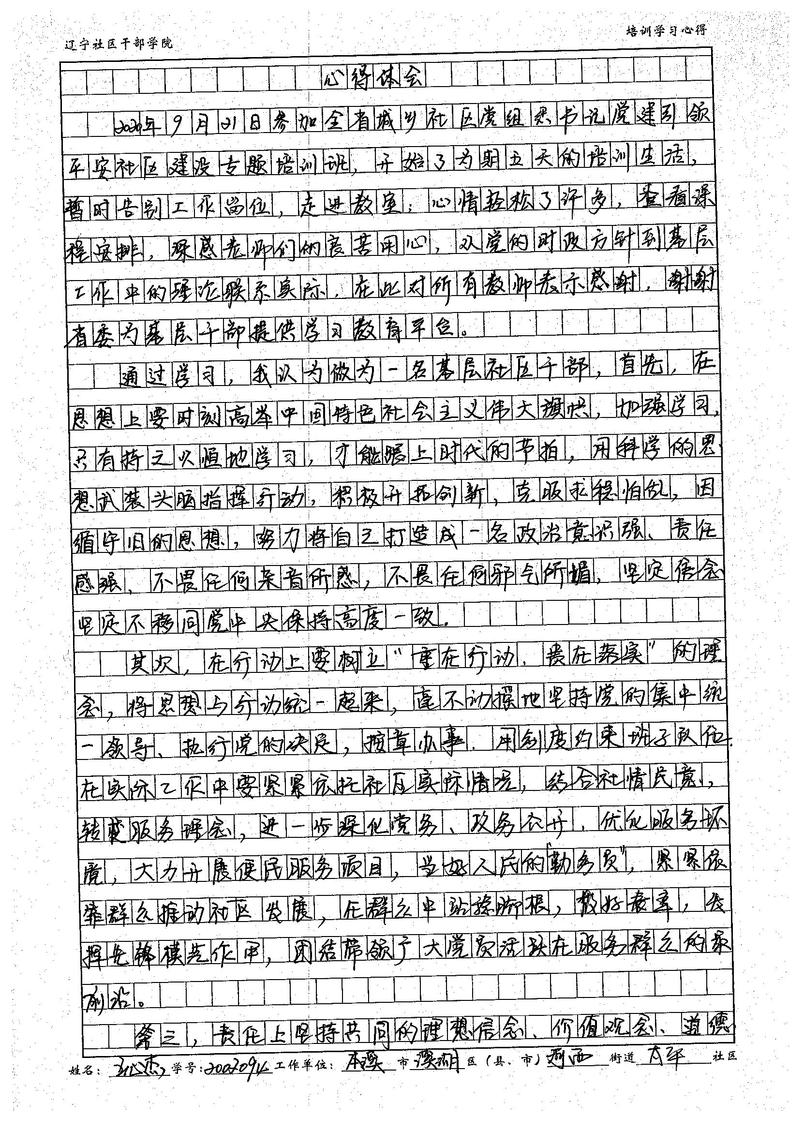 辽宁社区干部学院
培训学习心得
心得体会
2020年9月21日参加全省城乡社区党组织书记党建引领
平安社区建设专题培训班，开始了为期五天的培训生活，
暂时告别工作岗位，走进教室，心情轻松了许多，查看课
程安排，深感老师们的良苦用心，从党的时政方针到基层
工作中的理论联系实际，在此对所有教师表示感谢，谢谢
省委为基层干部提供学习教育平台。
通过学习，我认为做为一名基层社区干部，首先，在
思想上要时刻高举中国特色社会主义伟大旗帜，加强学习，
只有持之以恒地学习，才能踏上时代的节拍，用科学的思
想武装头脑指挥行动，积极开拓创新，克服求稳怕乱，因
循守旧的思想，努力将自己打造成一名政治意识强、责任
感强、不畏任何杂音所惑，不畏任何邪气所媚，坚定信念
坚定不移同党中央保持高度一致。
其次，在行动上要树立“重在行动、贵在落实”的理
念，将思想与行动统一起来，毫不动摇地坚持党的集中统
一领导、执行党的决定，按章办事，用制度约束班子队伍。
在实际工作中要紧紧依托社区实际情况，结合社情民意，
转变服务理念，进一步深化党务、政务公开，优化服务环
境，大力开展便民服务项目，当好人民的“勤务员”，紧紧依
靠群众推动社区发展，在群众中站稳脚根，做好表率，发
挥先锋模范作用，团结带领广大党员活跃在服务群众的最
前沿。
第三，责任上坚持共同的理想信念、价值观念、道德
姓名： 学号：20020914 工作单位： 本溪 市 溪湖 区（县、市） 河西 街道 太平 社区